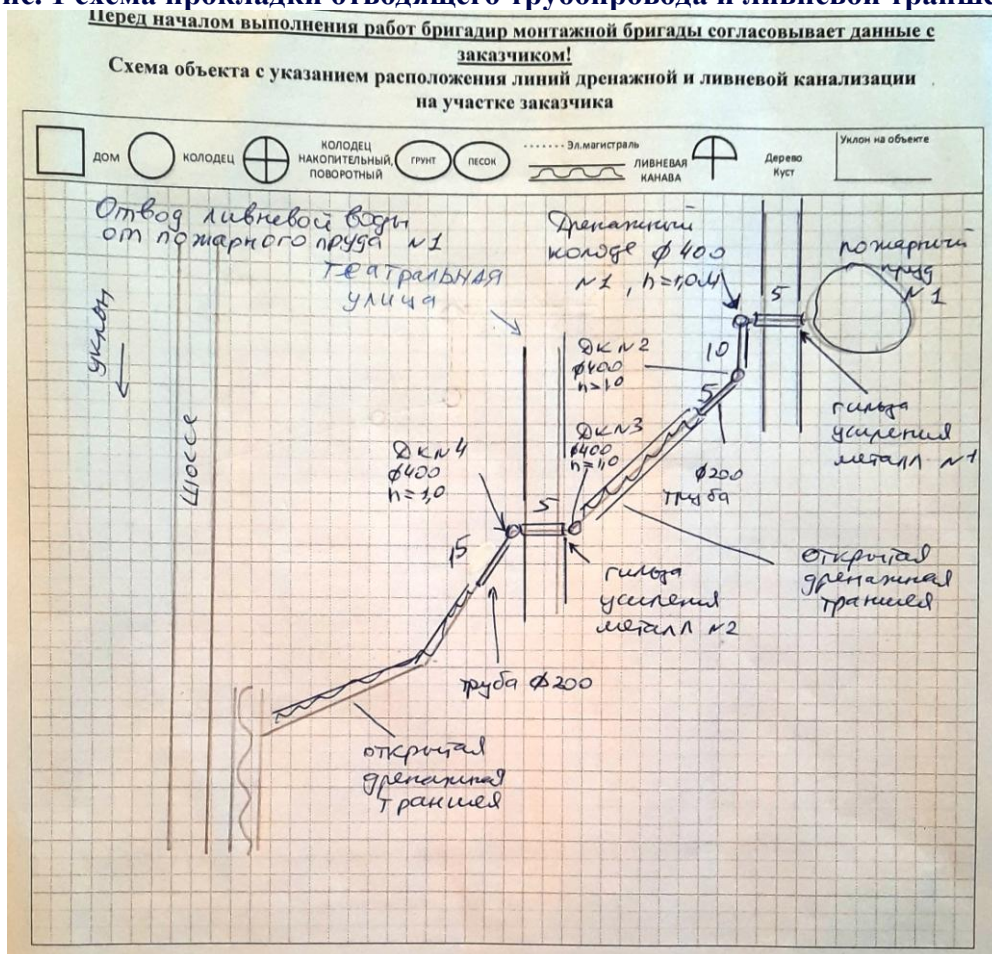 ис. 1 схема прокладки отводящего трубопровода и ливневой транше
Перед началом выполнения работ бригадир монтажной бригады согласовывает данные с
заказчиком!
Схема объекта с указанием расположения линий дренажной и ливневой канализации
на участке заказчика
ДОМ
КОЛОДЕЦ
КОЛОДЕЦ
НАКОПИТЕЛЬНЫЙ,
ПОВОРОТНЫЙ
ГРУНТ
ПЕСОК
Эл.магистраль
ЛИВНЕВАЯ
КАНАВА
Дерево
Куст
Уклон на объекте
Отвод ливневой воды
от пожарного пруда №1
ТЕАТРАЛЬНАЯ
УЛИЦА
Дренажный
колоде ф 400
№1, h=1,0м
пожарный
пруд
№1
5
10
5
уклон
шоссе
ДК №2
ф400
h=1,0
ДК №3
ф400
h=1,0
ДК №4
ф400
h=1,0
5
15
гильза
усиления
металл №1
ф200
труба
открытая
дренажная
траншея
гильза
усиления
металл №2
труба ф200
открытая
дренажная
траншея